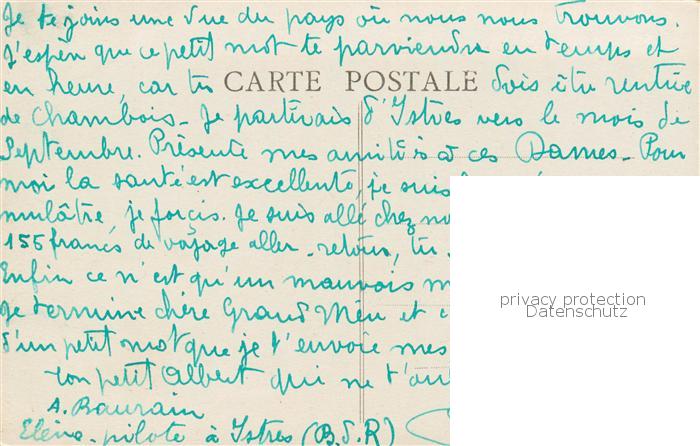 Je te joins une vue du pays où nous nous trouvons.
J'espère que ce petit mot te parviendra en temps et
en heure, car tu CARTE POSTALE dois être rentrée
de Chambois - Je partirais d'Istres vers le mois de
Septembre. Présente mes amitiés à ces Dames - Pour
moi la santé est excellente, je suis
mulâtre, je forcis. Je suis allé chez
155 francs de voyage aller - retour, tu
Enfin ce n'est qu'un mauvais
Je termine chère Grand Mère et
d'un petit mot que je t'envoie mes
ton petit Albert qui ne t'
A. Baurain
Elève - pilote à Istres (B.d.R)
privacy protection
Datenschutz